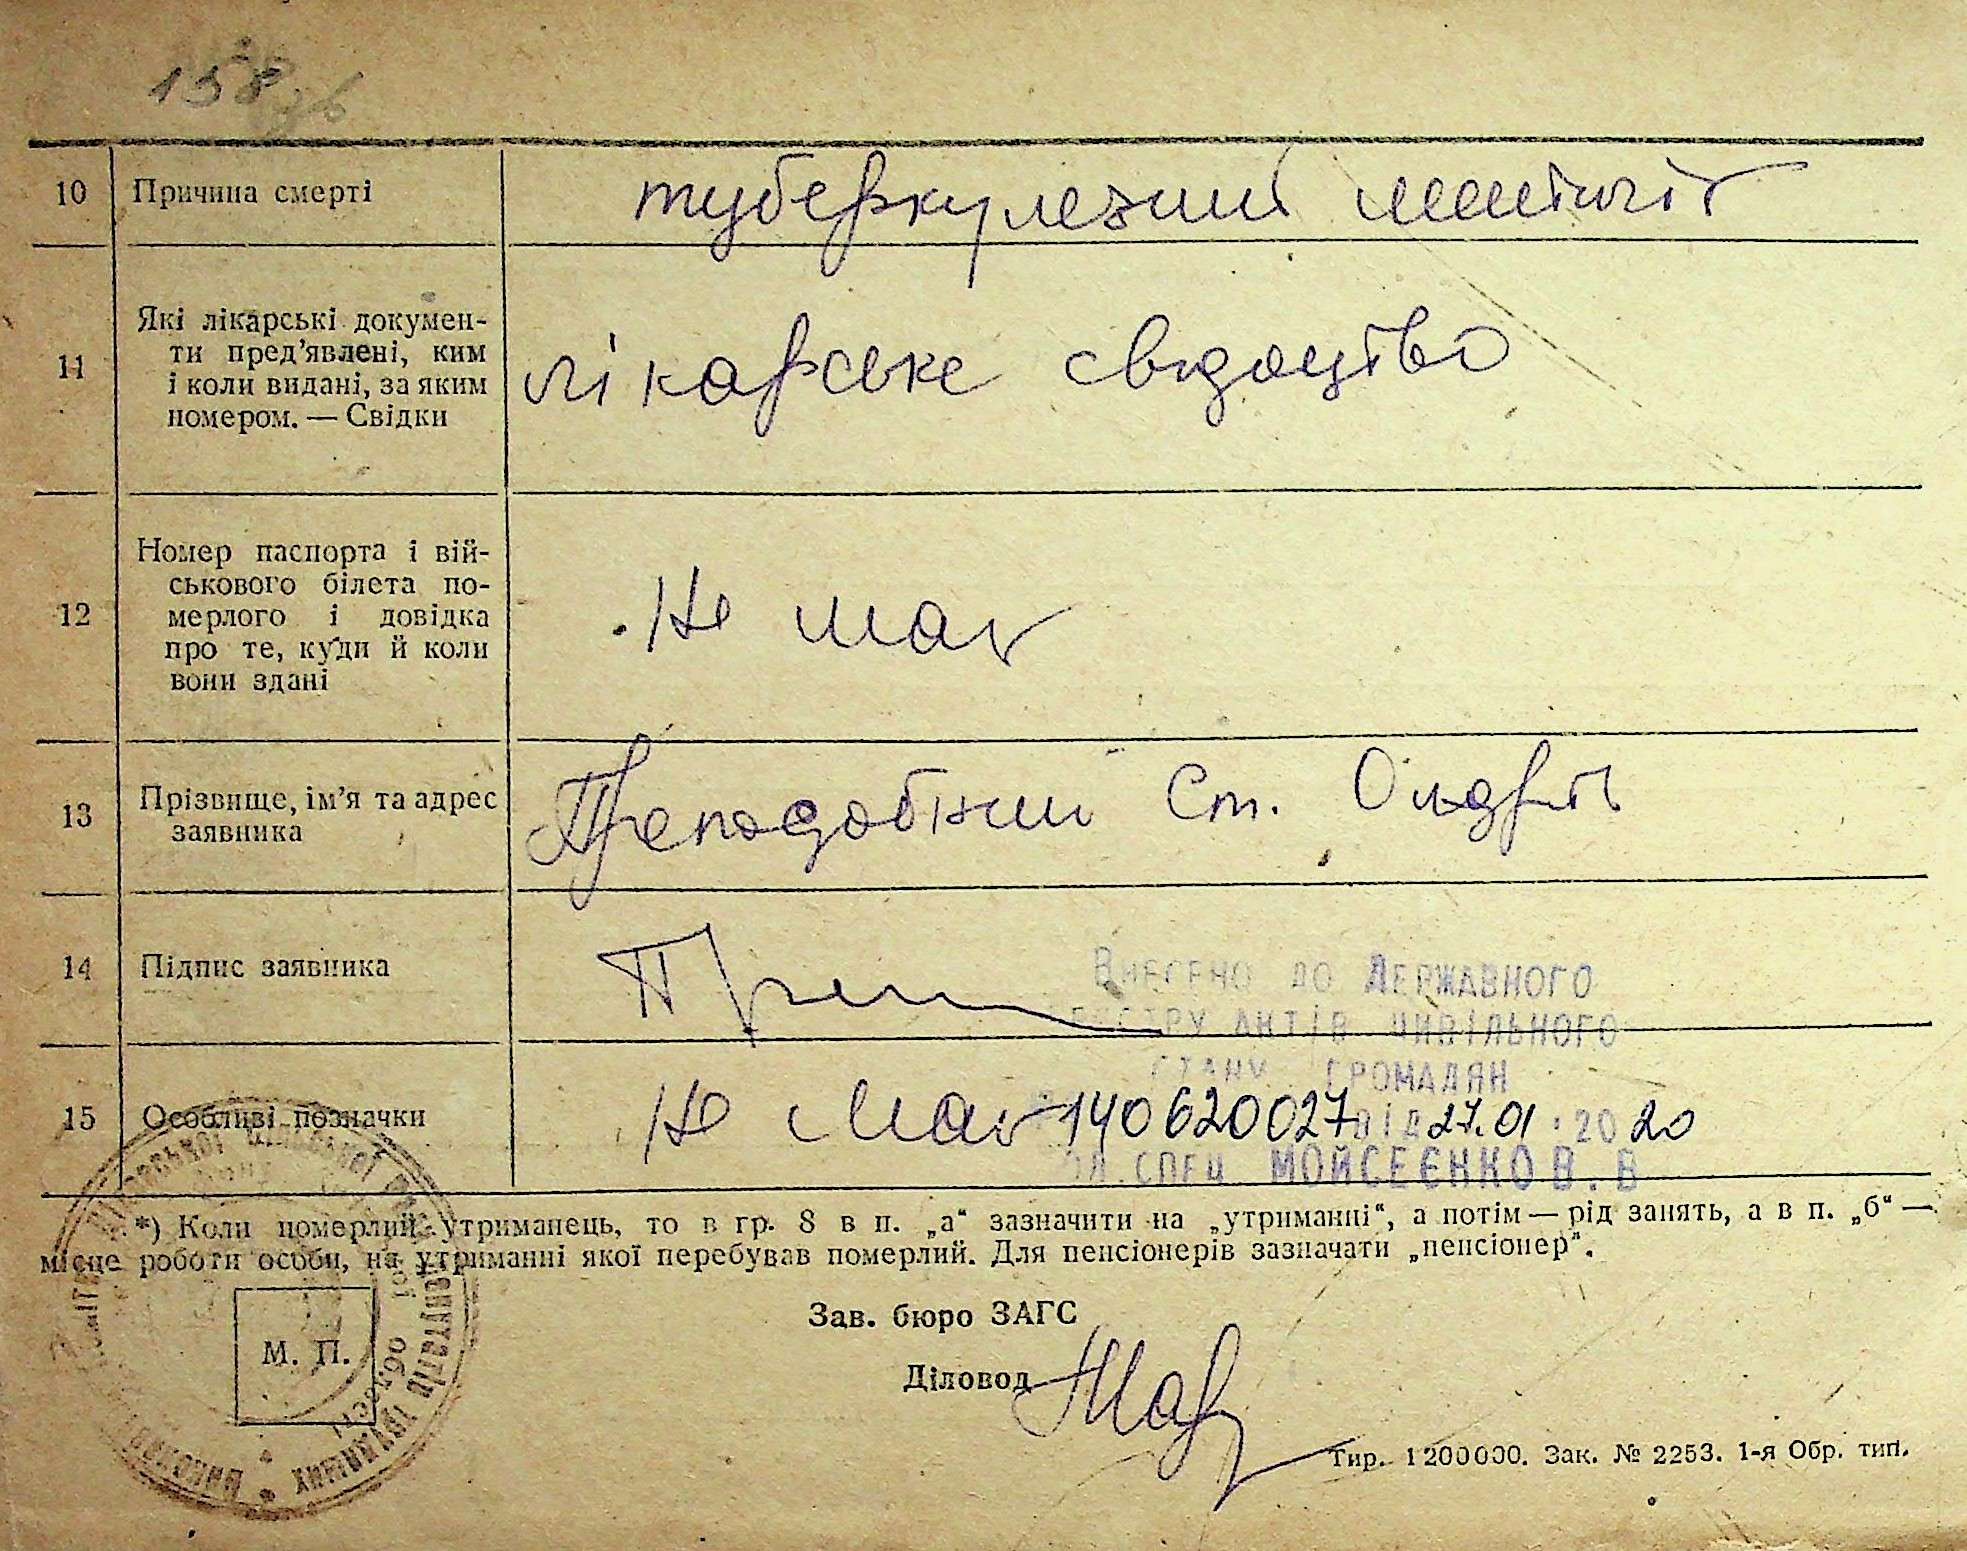 158
10 Причина смерті туберкулезний менінгіт
11 Які лікарські докумен-
ти пред’явлені, ким
і коли видані, за яким
номером. — Свідки
лікарське свідоцтво
12 Номер паспорта і вій-
ськового білета по-
мерлого і довідка
про те, куди й коли
вони здані
Не має
13 Прізвище, ім’я та адрес
заявника
Преподобний Ст.
14 Підпис заявника
Внесено до Державного
реєстру актів цивільного
стану громадян
15 Особливі позначки Не має
140620027 від 27.01.2020
спец МОЙСЕЄНКО В. В
*) Коли померлий утриманець, то в гр. 8 в п. „а“ зазначити на „утриманні“, а потім — рід занять, а в п. „б“ —
місце роботи особи, на утриманні якої перебував померлий. Для пенсіонерів зазначати „пенсіонер“.
Зав. бюро ЗАГС
М. П.
Діловод
Тир. 1200000. Зак. № 2253. 1-я Обр. тип.
депутатів трудящих
області